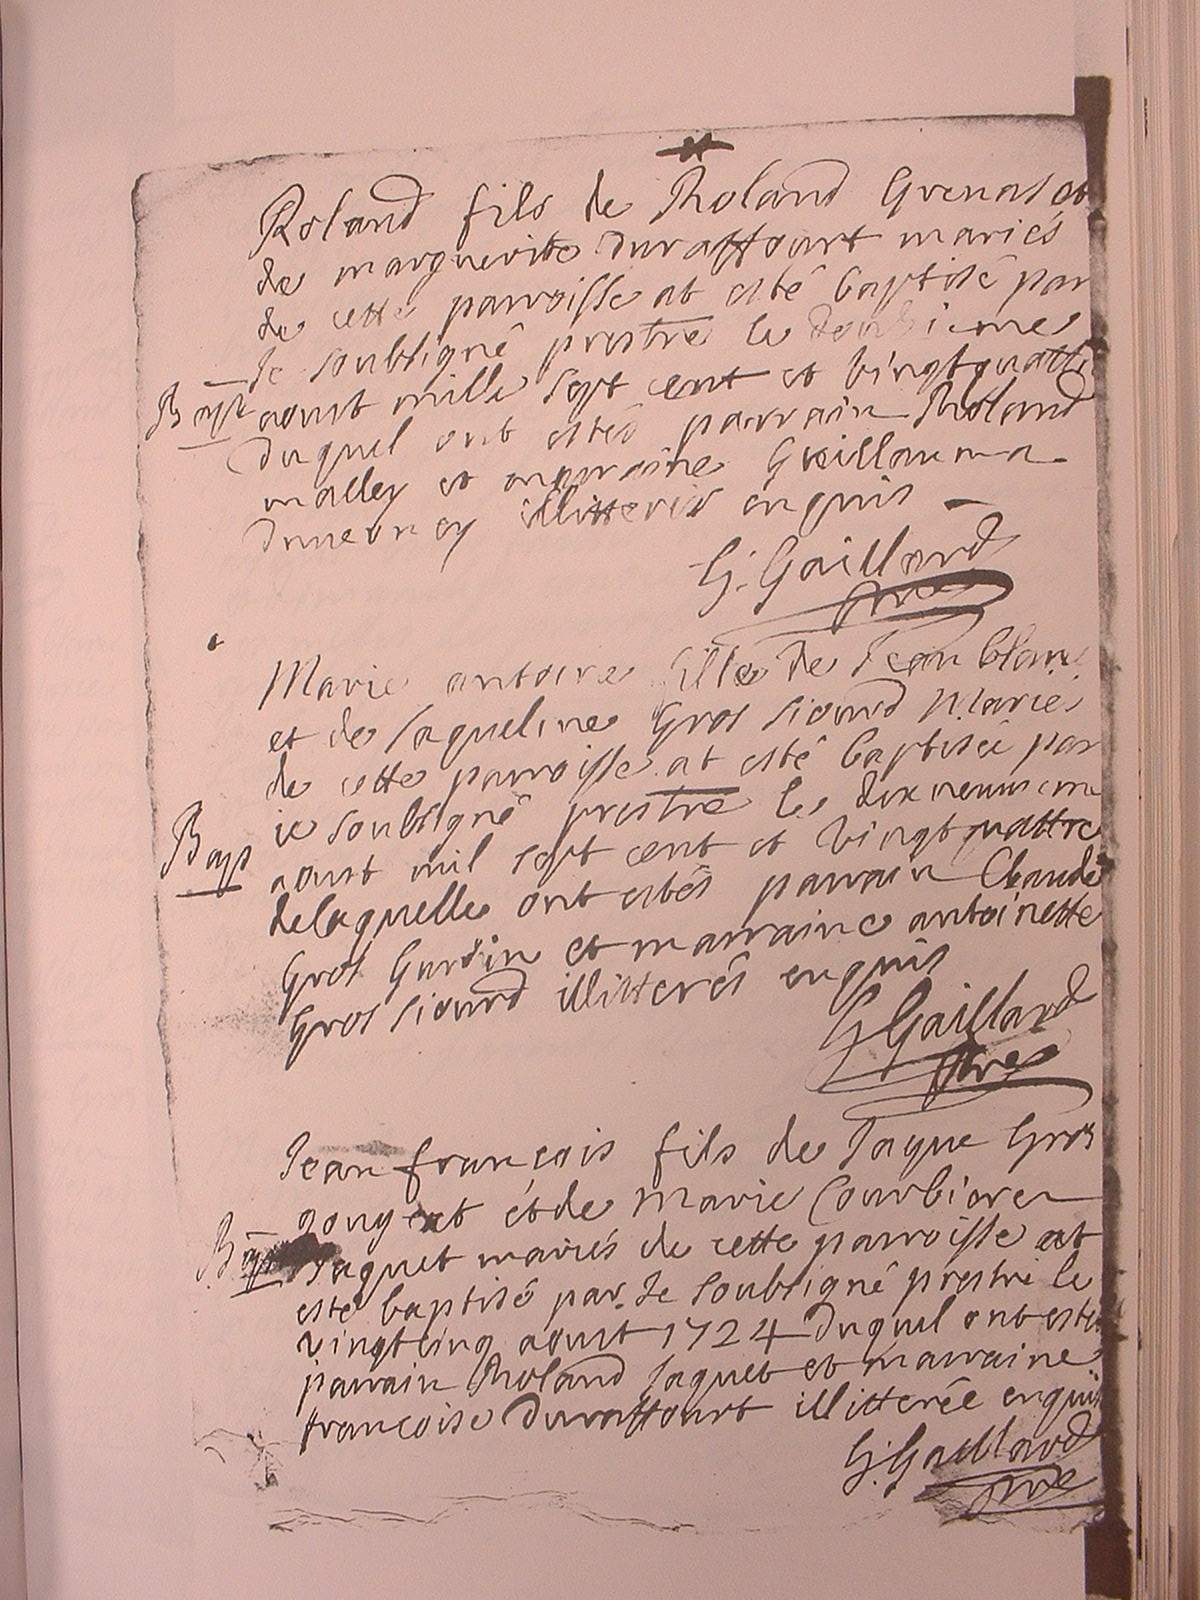 Roland fils de Roland Grenat et
de marguerite Duraffourt mariés
de cette parroisse at esté baptisé par
Je soubsigné prestre le
Bapt aoust mille sept cent et vingt quattre
Duquel ont estés parrain Roland
malley et marraine Guillauma
illitterés enquis
G. Gaillard
ptre
Marie antoine fille de Jean blanc
et de Jaqueline Gros Siourd Mariés
de cette parroisse at esté baptisée par
ie soubsigné prestre le dixneuvieme
Bapt aoust mil sept cent et vingt quattre
delaquelle ont estés parrain Claude
Gros Gurdin et marraine antoinette
Gros Siourd illitterés enquis
G. Gaillard
ptre
Jean françois fils de Jaque Gros
et de Marie Courbiere
Bapt Jaquet mariés de cette parroisse at
esté baptisé par Je soubsigné prestre le
vingtcinq aoust 1724 Duquel ont estés
parrain Roland Jaquet et marraine
françoise Duraffourt illitterée enquis
G. Gaillard
ptre